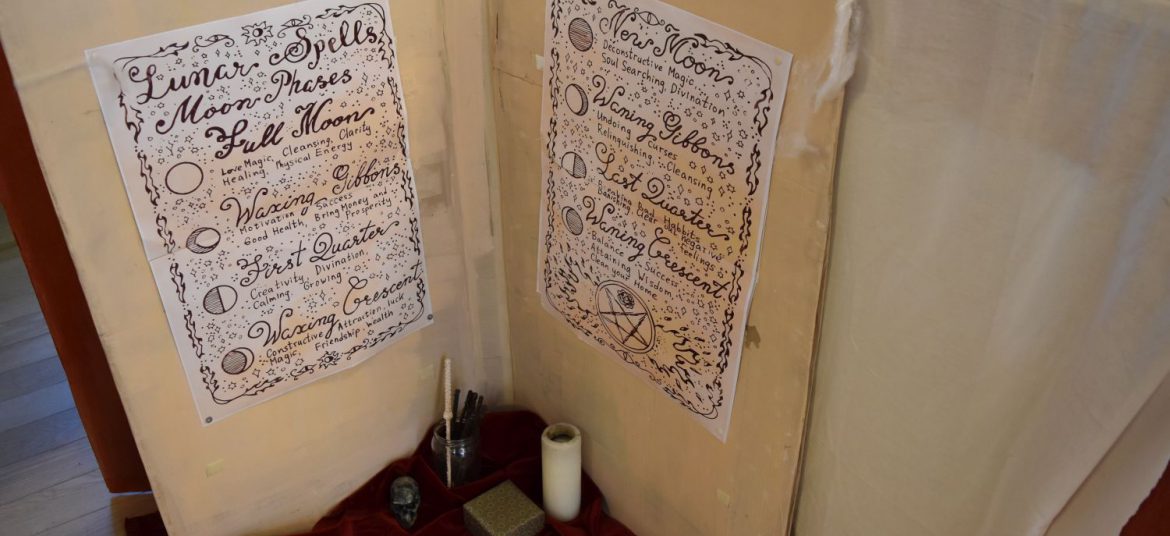 Lunar Spells
Moon Phases
Full Moon
Love Magic, Cleansing, Clarity
Healing, Physical Energy
Waxing Gibbons
Motivation, Success
Good Health, Bring Money and Prosperity
First Quarter
Creativity, Divination,
Calming, Growing
Waxing Crescent
Constructive Attraction, luck
Magic, Friendship, wealth
New Moon
Deconstructive Magic
Soul Searching, Divination
Waning Gibbons
Undoing Curses
Relinquishing, Cleansing
Last Quarter
Breaking Bad Habbits
Banishing, Clear of Negative Feelings
Waning Crescent
Balance, Success
Obtaining Wisdom
Clear your Home